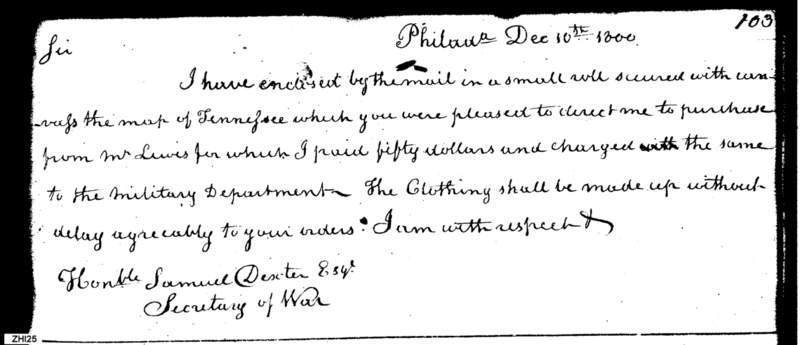 103
Philada Dec 10th 1800
Sir
I have enclosed by the mail in a small roll secured with can-
-vass the map of Tennessee which you were pleased to direct me to purchase
from Mr Lewis for which I paid fifty dollars and charged with the same
to the Military Department The Clothing shall be made up without
delay agreeably to your orders. I am with respect &
Honble Samuel Dexter Esqr
Secretary of War
ZHI25